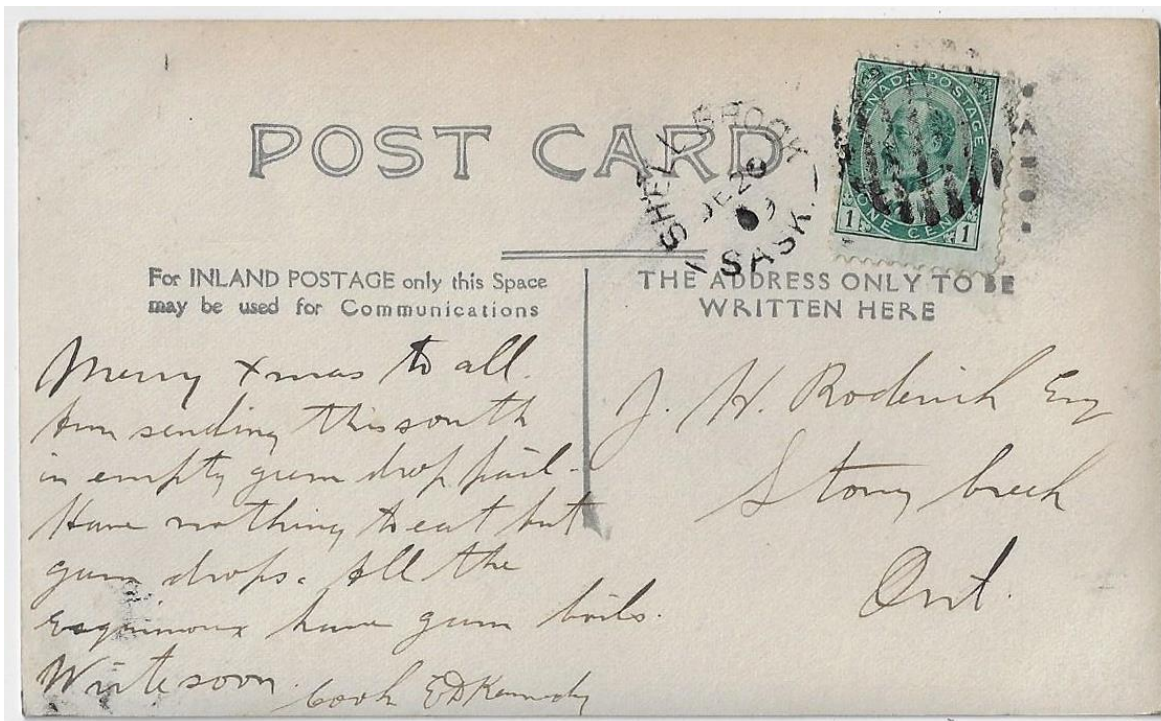 POST CARD
SHELLBROOK
DE 20
SASK.
CANADA POSTAGE
1 ONE CENT 1
For INLAND POSTAGE only this Space
may be used for Communications
THE ADDRESS ONLY TO BE
WRITTEN HERE
Merry Xmas to all.
Am sending this south
in empty gum drop pail.
Have nothing to eat but
gum drops. All the
Esquimoux have gum boils.
Write soon.
Cook E D Kennedy
J. H. Roderich Esq
Stony Creek
Ont.